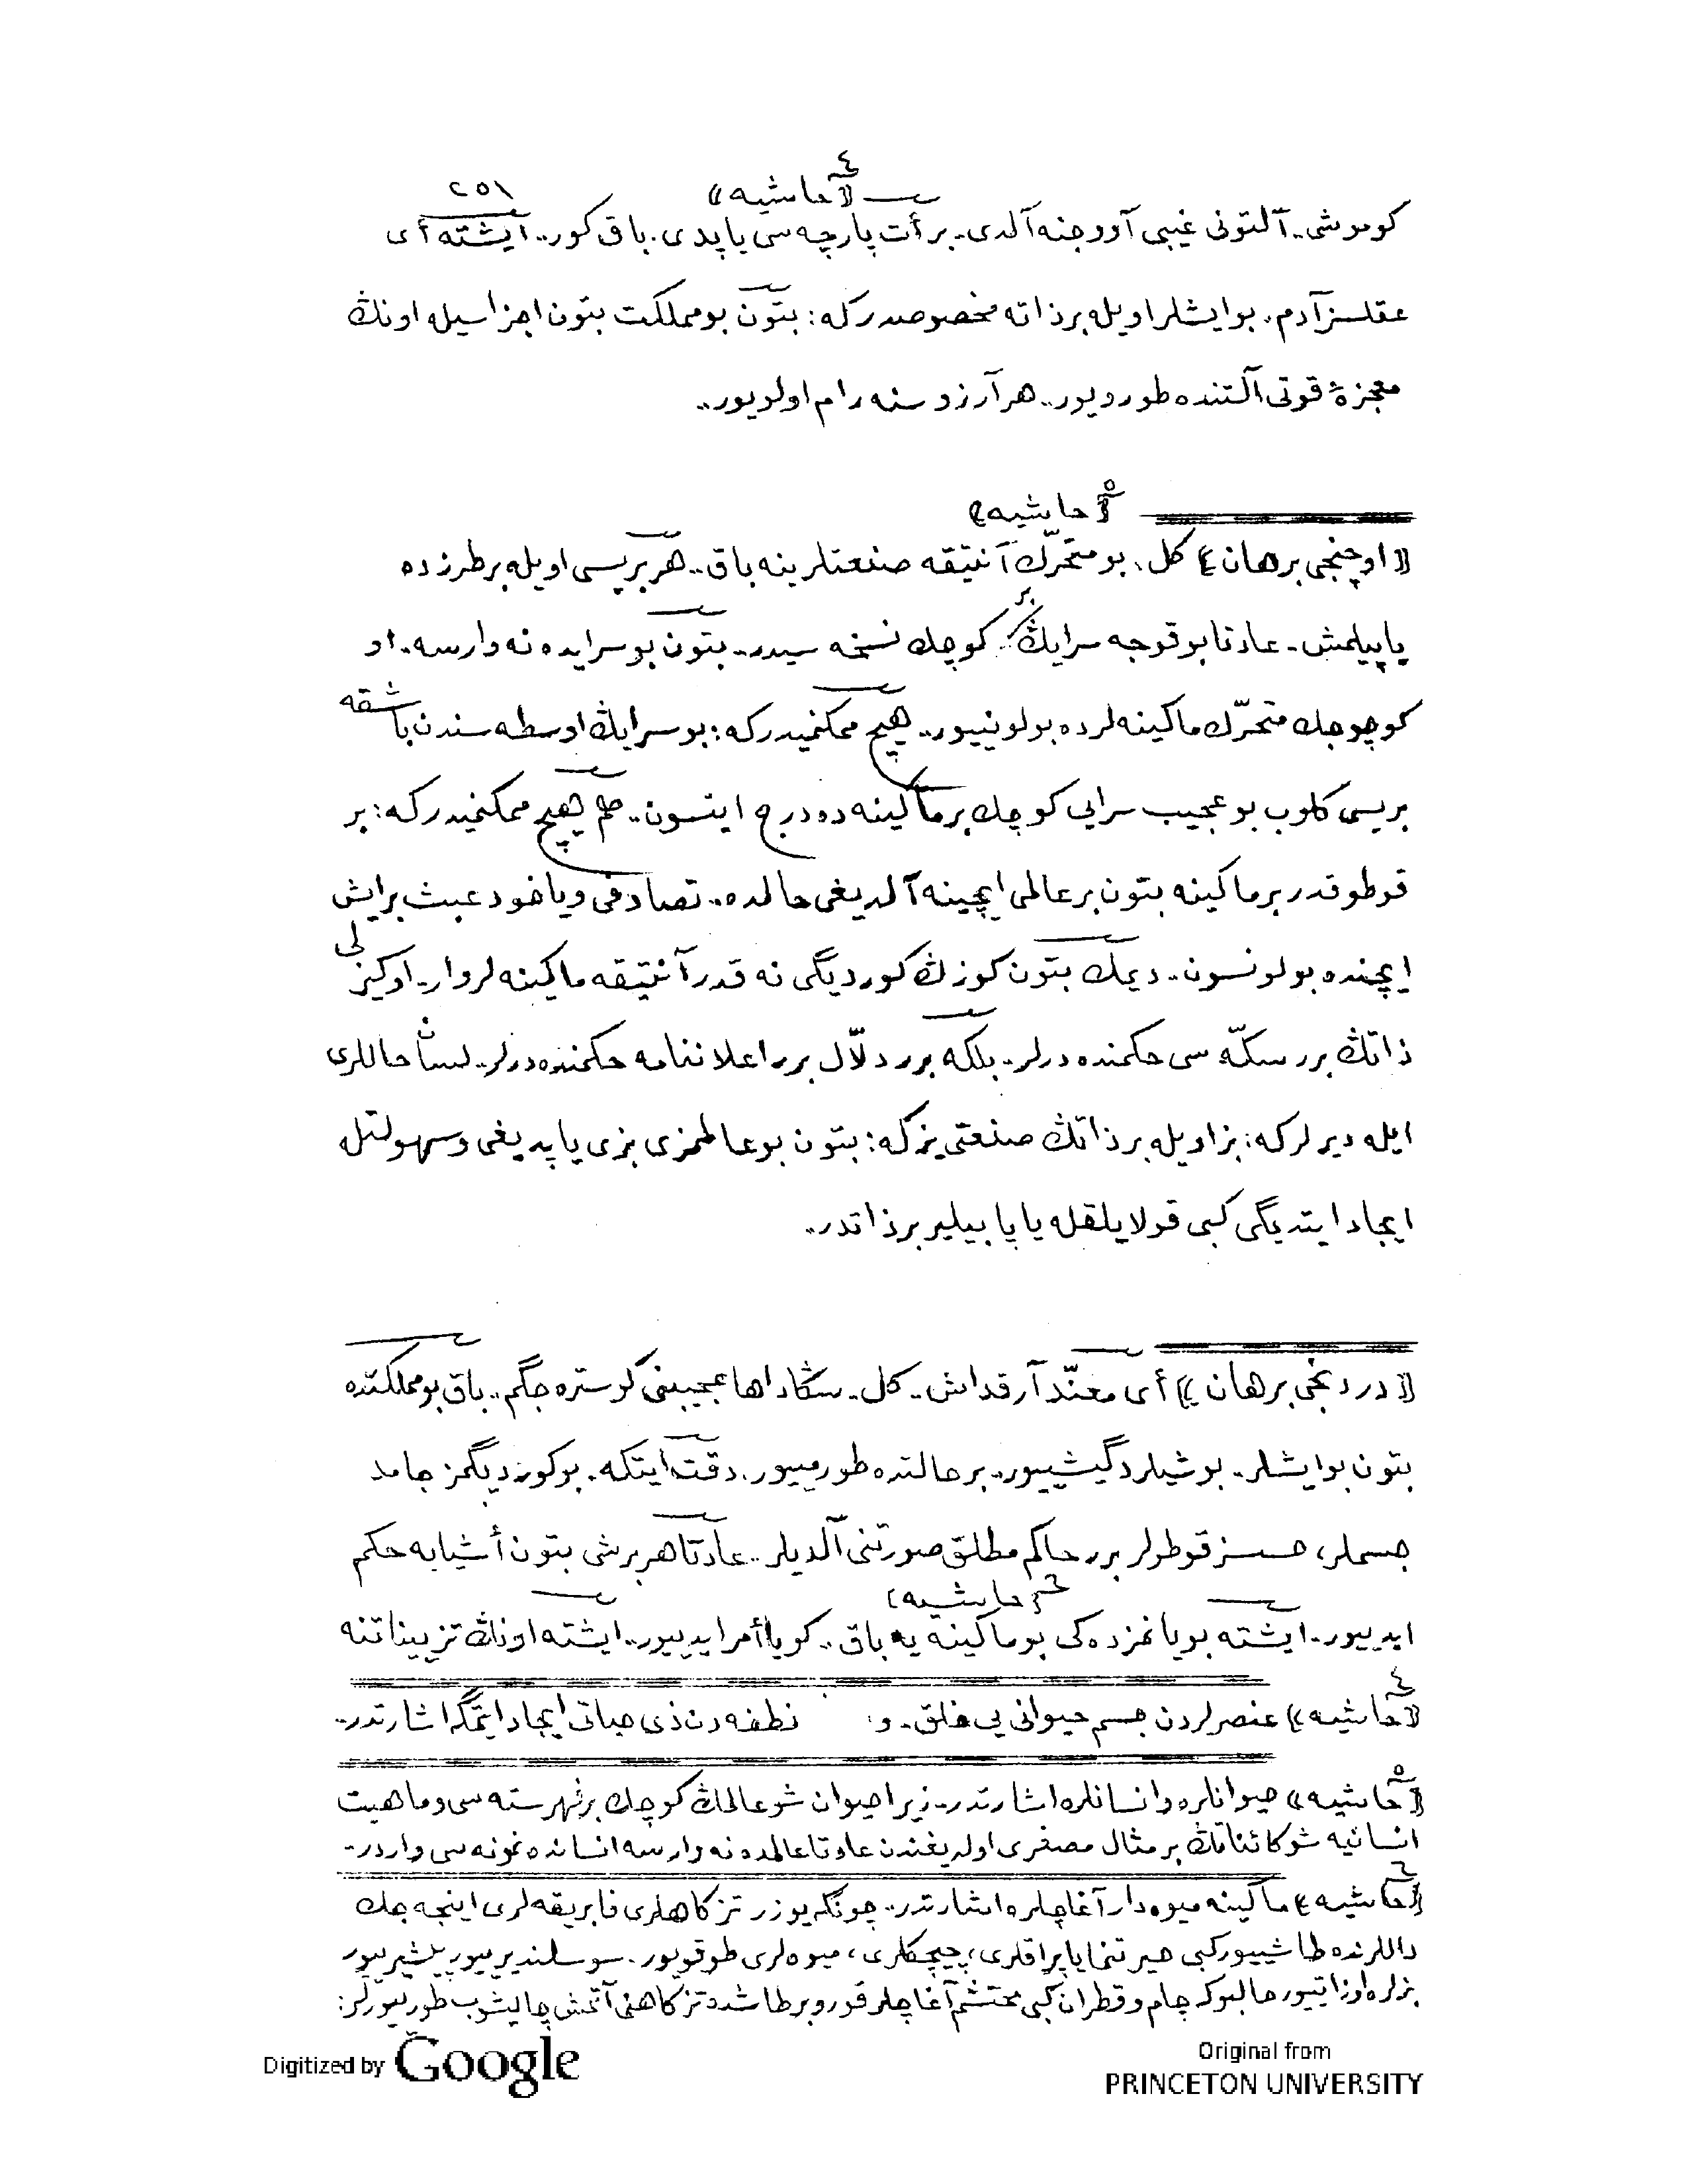 ٢٥١
((حاشيه)) ٤
كوموشى.. آلتونى غيبى آووجنه آلدى.. بر أت پارچه سى ياپدى. باق كور.. ايشته أى
عقلسز آدم. بو ايشلر اويله بر ذاته مخصوصدركه: بتون بو مملكت بتون اجزاسيله اونڭ
معجزۀ قوتى آلتنده طورويور.. هر آرزوسنه رام اولويور..
((حاشيه)) ٥
((اوچنجى برهان)) كل. بو متحرّك آنتيقه صنعتلرينه باق.. هر بريسى اويله بر طرزده
ياپيلمش.. عادتا بو قوجه سرايڭ بر كوچك نسخه سيدر.. بتون بو سرايده نه وارسه.. او
كوچوجك متحرّك ماكينه لرده بولونييور.. هيچ ممكنميدركه: بو سرايڭ اوسطه سندن باشقه
بريسى كلوب بو عجيب سرايى كوچك بر ماكينه ده درج ايتسون.. هم هيچ ممكنميدركه: بر
قوطو قدر بر ماكينه بتون بر عالمى ايچينه آلديغى حالده.. تصادفى وياخود عبث بر ايش
ايچنده بولونسون.. ديمك بتون كوزڭ كورديگى نه قدر آنتيقه ماكينه لر وار.. او كيزلى
ذاتڭ برر سكّه سى حكمنده درلر.. بلكه برر دلّال برر اعلاننامه حكمنده درلر.. لسان حاللرى
ايله ديرلركه: بز اويله بر ذاتڭ صنعتى يزكه: بتون بو عالممزى بزى ياپديغى و سهولتله
ايجاد ايتديگى كبى قولايلقله ياپا بيلير بر ذاتدر..
((دردنجى برهان)) أى معنّد آرقداش.. كل.. سڭا داها عجيبنى كوستره جگم.. باق بو مملكتده
بتون بو ايشلر.. بو شيلر دگيشييور.. بر حالتده طورمييور. دقت ايتكه. بو كورديگمز جامد
جسملر، حسسز قوطولر برر حاكم مطلق صورتنى آلديلر.. عادتا هر برشى بتون أشيايه حكم
((حاشيه)) ٦
ايدييور.. ايشته بو يانمزده كى بو ماكينه يه باق.. كويا أمر ايدييور.. ايشته اونڭ تزييناتنه
((حاشيه)) ٤ عنصرلردن جسم حيوانى يى خلق.. و: نطفه دن ذى حياتى ايجاد ايتمگه اشارتدر..
((حاشيه)) ٥ حيوانلره و انسانلره اشارتدر.. زيرا حيوان شو عالمڭ كوچك بر فهرسته سى و ماهيت
انسانيه شو كائناتڭ بر مثال مصغرى اولديغندن عادتا عالمده نه وارسه انسانده نمونه سى واردر..
((حاشيه)) ٦ ماكينه ميوه دار آغاچلره اشارتدر.. چونكه يوزر تزكاهلرى فابريقه لرى اينجه جك
داللرنده طاشييور كبى حيرتنما ياپراقلرى، چيچكلرى، ميوه لرى طوقويور.. سوسلنديرييور پيشيرييور
بزلره اوزاتييور حالبوكه چام و قطران كبى محتشم آغاچلر قورو بر طاشده تزكاهنى آتمش چاليشوب طورييورلر:
Digitized by Google
Original from
PRINCETON UNIVERSITY